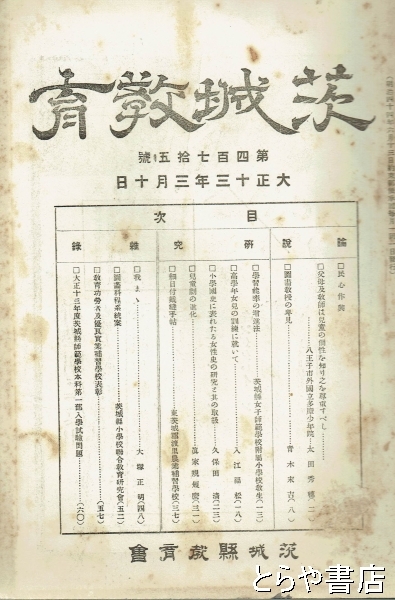 茨城教育
第四百七拾五號
大正十三年三月十日
目次
論說
民心作興
父母及敎師は兒童の個性を知り之を尊重すべし
八王子市外國立多摩少年院 太田秀穗(二)
圖畫敎授の卑見 青木末吉(八)
硏究
學習能率の增進法 茨城縣女子師範學校附屬小學校敎生(一三)
高學年女兒の訓練に就いて 入江福松(一八)
小學國史に表れたる女性史の硏究と其の取扱 久保田淸(二三)
兒童劇の淨化
細目付裁縫手帖 東茨城郡渡里農業補習學校(三七)
雜錄
我まゝ 大塚正明(四八)
圖畫科程系統案 茨城縣小學校聯合敎育硏究會(五二)
敎育功勞者及優良實業補習學校表彰(五七)
大正十三年度茨城縣師範學校本科第一部入學試驗問題(六〇)
茨城縣敎育會
とらや書店